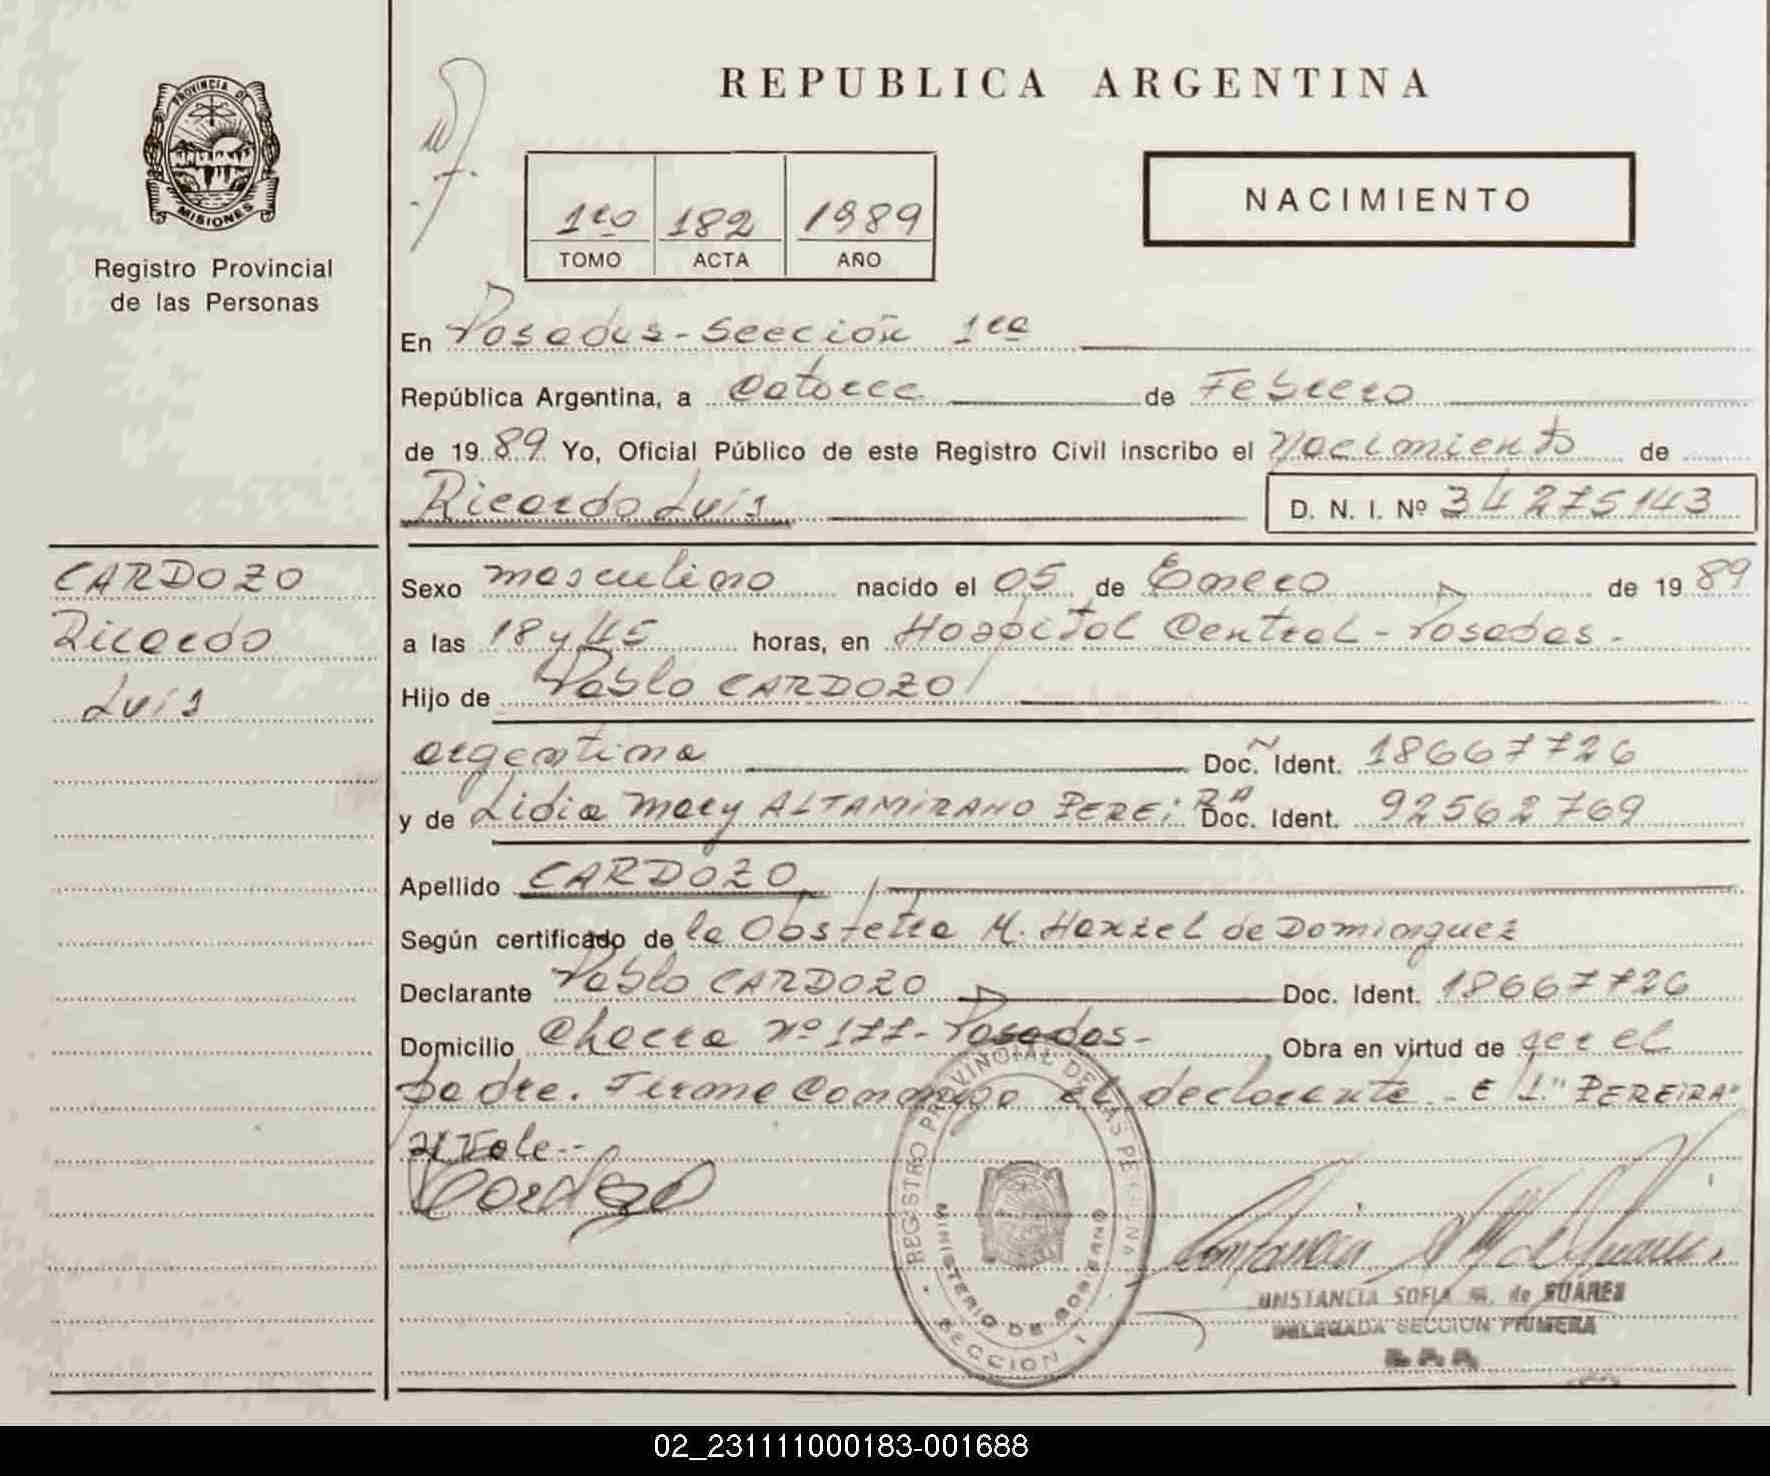 REPUBLICA ARGENTINA
PROVINCIA DE
MISIONES
Registro Provincial
de las Personas
1ro 182 1989
TOMO ACTA AÑO
NACIMIENTO
En Posadas - Sección 1ra
República Argentina, a Catorce de Febrero
de 19 89 Yo, Oficial Público de este Registro Civil inscribo el Nacimiento de
Ricardo Luis D. N. I. Nº 34 275143
CARDOZO
Ricardo
Luis
Sexo masculino nacido el 05 de Enero de 19 89
a las 18 y 45 horas, en Hospital Central - Posadas -
Hijo de Pablo CARDOZO
argentina Doc. Ident. 18667726
y de Lidia Mary ALTAMIRANO PEREiRA Doc. Ident. 92562769
Apellido CARDOZO
Según certificado de la Obstetra M. de Dominguez
Declarante Pablo CARDOZO Doc. Ident. 18667726
Domicilio Chacra nº 177 - Posadas - Obra en virtud de ser el
padre. Firma Conmigo el declarante - E/L "PEREiRA"
Vale -
Cardozo
REGISTRO PROVINCIAL DE LAS PERSONAS
MINISTERIO DE GOBIERNO
SECCION 1
CONSTANCIA SOFIA M. de SUAREZ
DELEGADA SECCION PRIMERA
02_231111000183-001688